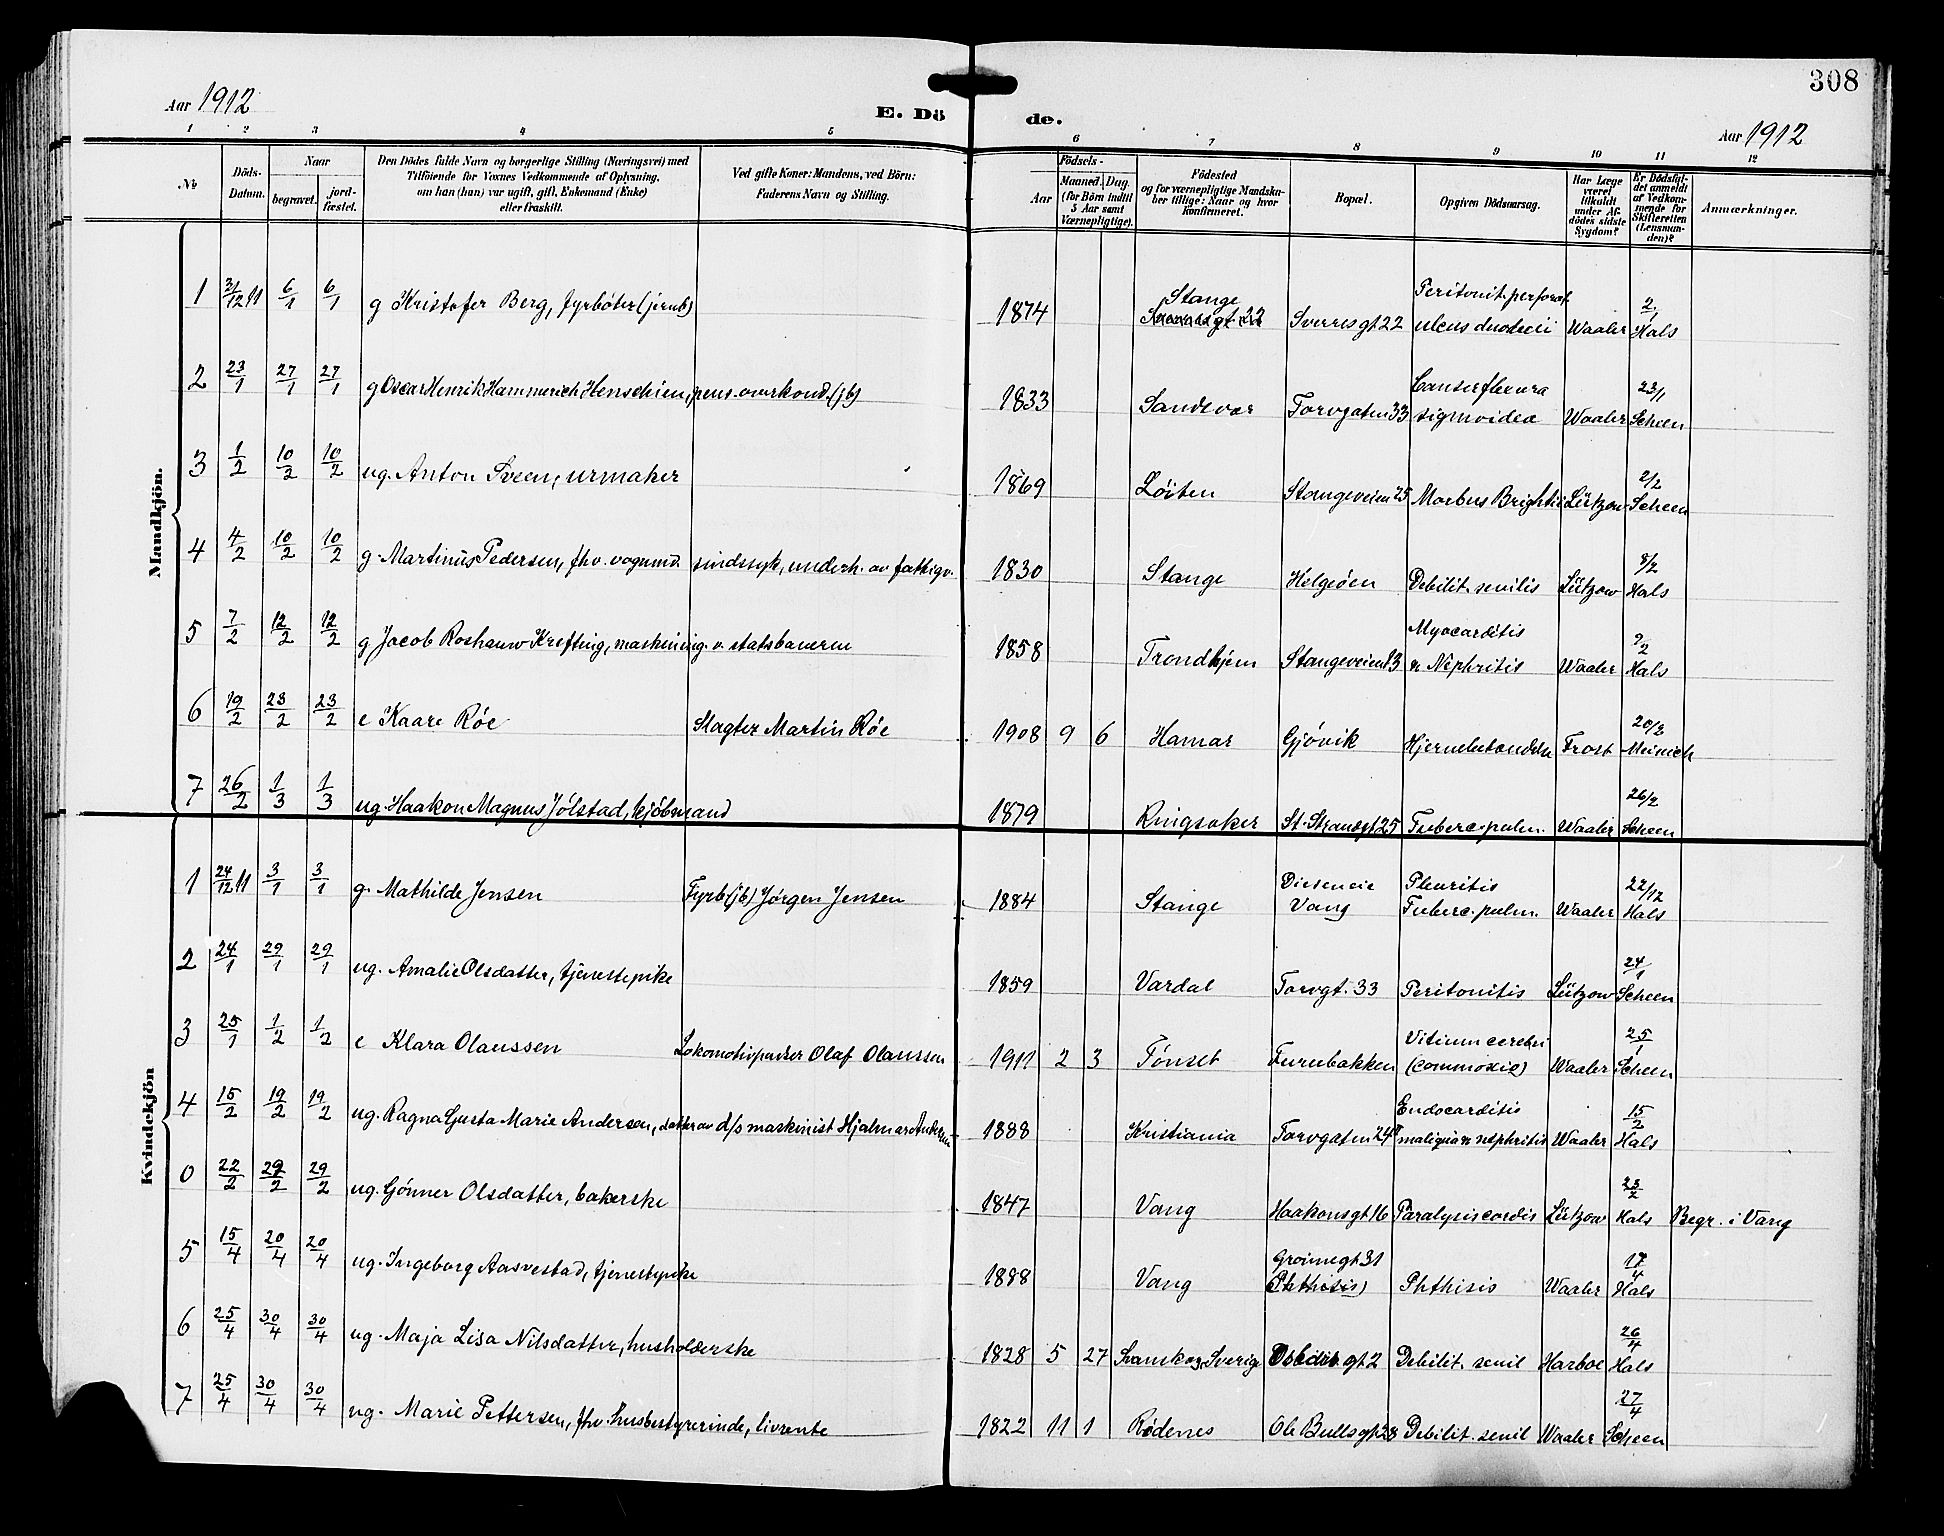 308
Aar 1912
E. Dö de.
Aar 1912
1 2 3 4 5 6 7 8 9 10 11 12
No
Döds-Datum.
Naar
begravet.
jord-fæstet.
Den Dödes fulde Navn og borgerlige Stilling (Næringsvei) med
Tilföiende for Voxnes Vedkommende af Oplysning,
om han (hun) var ugift, gift, Enkemand (Enke)
eller fraskilt.
Ved gifte Koner: Mandens, ved Börn:
Faderens Navn og Stilling.
Födsels-
Aar
Maaned. Dag.
(for Börn indtil
5 Aar samt
Værnepligtige).
Födested
og for værnepligtige Mandska-
ber tillige: Naar og hvor
konfirmeret.
Bopæl.
Opgiven Dödsaarsag.
Har Læge
været
tilkaldt
under Af-
dödes sidste
Sygdom?
Er Dödsfal-
det anmeldt
af Vedkom-
mende for
Skifteretten
(Lensman-
den)?
Anmærkninger.
Mandkjön.
1 31/12 11 6/1 6/1 g Kristofer Berg, fyrböter (jernb) 1874 Stange Sverresgt 22 Peritonit. perforat. ulcus duodeni Waaler 2/1 Hals
2 23/1 27/1 27/1 g Oscar Henrik Hammerich Henschien, pens. overkond. (jb) 1833 Sandsvær Torvgaten 33 Cancer flexura sigmoidea Waaler 23/1 Scheen
3 1/2 10/2 10/2 ug. Anton Tveen, urmaker 1869 Löiten Stangeveien 25 Morbus Brightii Lützow 2/2 Scheen
4 4/2 10/2 10/2 g. Martinus Pedersen, fhv. vognmd. sindssyk, underh. av fattigv. 1830 Stange Helgeöen Debilit. senilis Lützow 8/2 Hals
5 7/2 12/2 12/2 g Jacob Roshauw Krefting, maskining. v. statsbanerne 1858 Trondhjem Stangeveien 13 Myocarditis & Nephritis Waaler 9/2 Hals
6 19/2 23/2 23/2 e Kaare Röe Slagter Martin Röe 1908 9 6 Hamar Gjövik Hjernebetændelse Frost 20/2 Meinich
7 26/2 1/3 1/3 ug. Haakon Magnus Jölstad, kjöbmand 1879 Ringsaker St. Strandgt 25 Tuberc. pulm. Waaler 26/2 Scheen
Kvindekjön
1 24/12 11 3/1 3/1 g. Mathilde Jensen Fyrb (jb) Jörgen Jensen 1884 Stange Vang Pleuritis Tuberc. pulm. Waaler 22/12 Hals
2 24/1 29/1 29/1 ug. Amalie Olsdatter, tjenestepike 1859 Vardal Torvgt. 33 Peritonitis Lützow 24/1 Scheen
3 25/1 1/2 1/2 e Klara Olaussen Lokomotivpudser Olaf Olaussen 1911 2 3 Tönset Furubakken Vitium cerebri (commosio) Waaler 25/1 Scheen
4 15/2 19/2 19/2 ug. Ragna Gusta Marie Andersen, datter av d/s maskinist Hjalmar Andersen 1888 Kristiania Torvgaten 24 Endocarditis maligna & nephritis Waaler 15/2 Hals
0 22/2 29/2 29/2 ug. Gönner Olsdatter, bakerske 1847 Vang Haakonsgt 16 Paralysis cordis Lützow 23/2 Hals Begr. i Vang
5 15/4 20/4 20/4 ug. Ingeborg Aasvestad, tjenestepike 1888 Vang Grönnegt 31 (Phthisis) Phthisis Waaler 17/4 Hals
6 25/4 30/4 30/4 ug. Maja Lisa Nilsdatter, husholderske 1828 5 27 Svanskog, Sverig gt 2 Debilit. senil Harboe 26/4 Hals
7 25/4 30/4 30/4 ug. Marie Pettersen, fhv. husbestyrerinde, livrente 1822 11 1 Rödenes Ole Bullsgt 28 Debilit. senil Waaler 27/4 Scheen